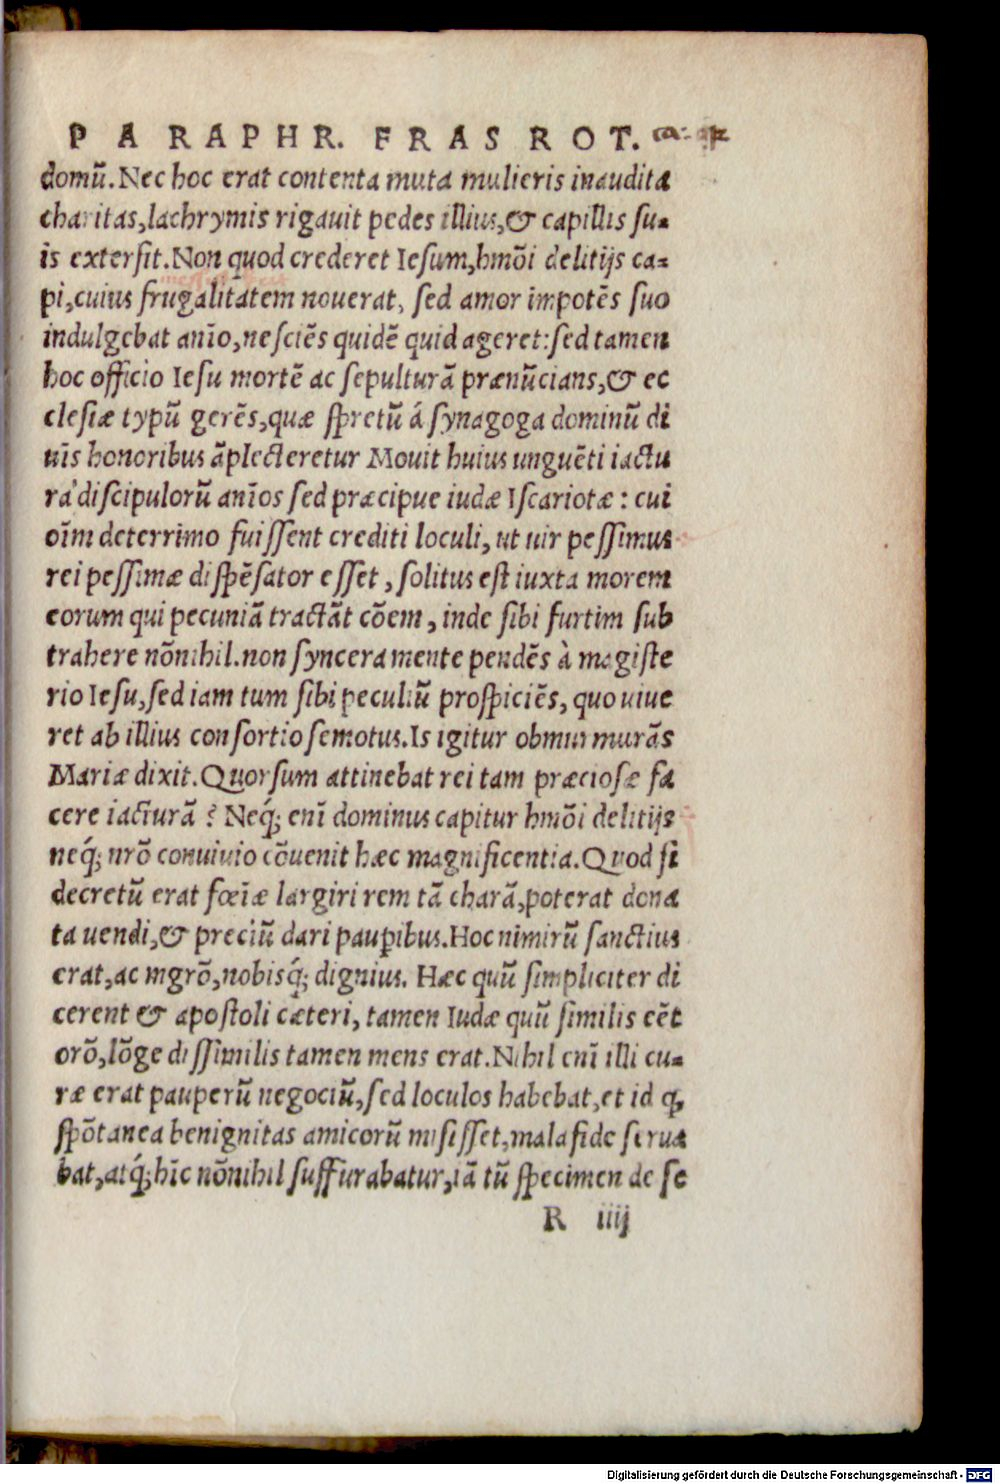 PARAPHR. FRAS ROT.
domū. Nec hoc erat contenta muta mulieris inaudita
charitas, lachrymis rigauit pedes illius, & capillis su-
is extersit. Non quod crederet Iesum, hmōi delitijs ca-
pi, cuius frugalitatem nouerat, sed amor impotēs suo
indulgebat anīo, nesciēs quidē quid ageret: sed tamen
hoc officio Iesu mortē ac sepulturā prænūcians, & ec
clesiæ typū gerēs, quæ spretū á synagoga dominū di
uīs honoribus āplecteretur Mouit huius unguēti iactu
rā discipulorū anīos sed præcipue iudæ Iscariotæ: cui
oīm deterrimo fuissent crediti loculi, ut uir pessimus
rei pessimæ dispēsator esset, solitus est iuxta morem
eorum qui pecuniā tractāt cōem, inde sibi furtim sub
trahere nōnihil. non syncera mente pendēs à magiste
rio Iesu, sed iam tum sibi peculiū prospiciēs, quo uiue
ret ab illius consortio semotus. Is igitur obmurmurās
Mariæ dixit. Quorsum attinebat rei tam præciosæ fa
cere iacturā? Neq́; enī dominus capitur hmōi delitijs
neq́; nrō conuiuio cōuenit hæc magnificentia. Quod si
decretū erat fœīæ largiri rem tā charā, poterat dona
ta uendi, & preciū dari paupibus. Hoc nimirū sanctius
erat, ac mgrō, nobisq́; dignius. Hæc quū simpliciter di
cerent & apostoli cæteri, tamen Iudæ quū similis eēt
orō, lōge dissimilis tamen mens erat. Nihil enī illi cu-
ræ erat pauperū negociū, sed loculos habebat, et id q,
spōtanea benignitas amicorū misisset, mala fide serua
bat, atq́; hīc nōnihil suffurabatur, iā tū specimen de se
R iiij
Digitalisierung gefördert durch die Deutsche Forschungsgemeinschaft - DFG